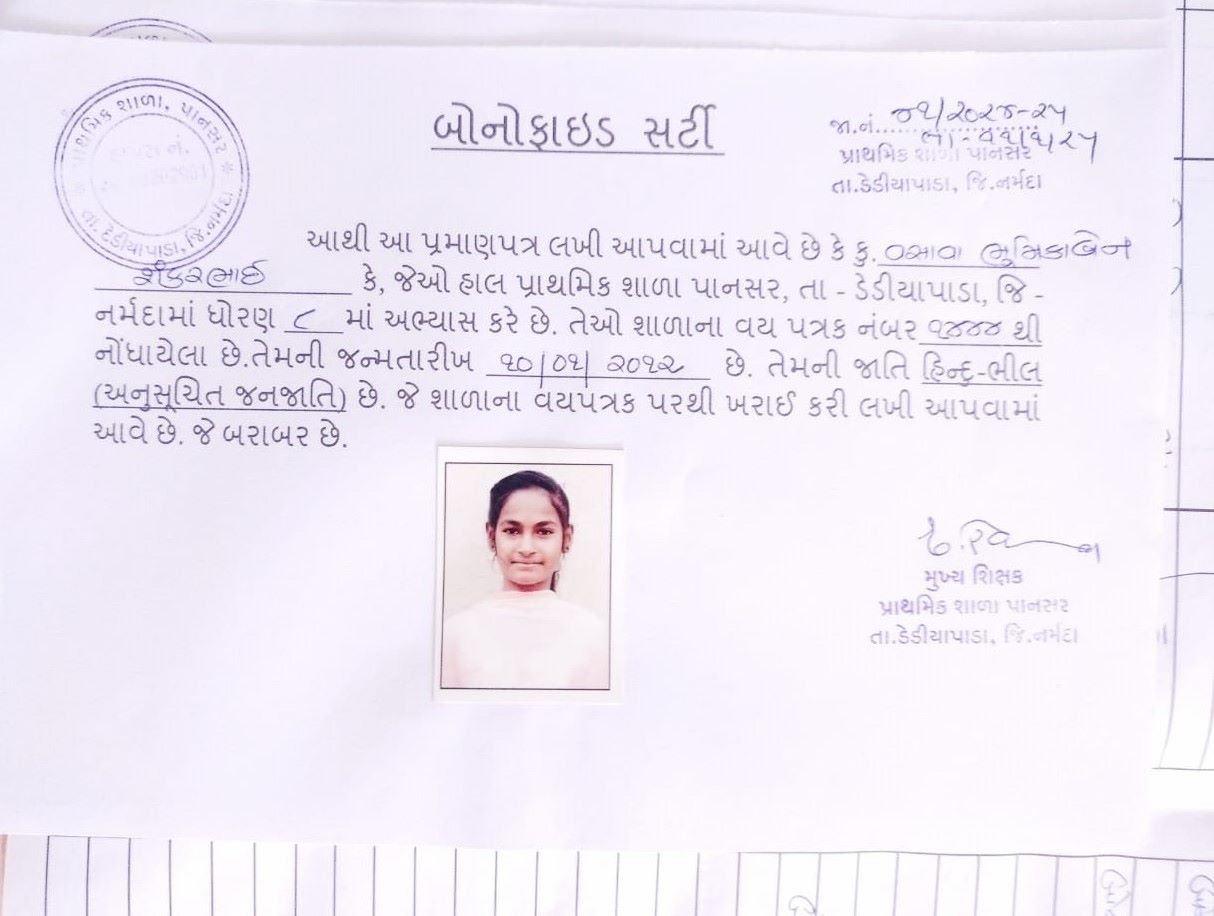 પ્રાથમિક શાળા, પાનસર
તા. દેડીયાપાડા, જિ. નર્મદા
બોનોફાઇડ સર્ટી
જા.નં. ૭૧/૨૦૨૪-૨૫
પ્રાથમિક શાળા પાનસર
તા.ડેડીયાપાડા, જિ.નર્મદા
આથી આ પ્રમાણપત્ર લખી આપવામાં આવે છે કે કુ. વસાવા ભુમિકાબેન
શંકરભાઈ કે, જેઓ હાલ પ્રાથમિક શાળા પાનસર, તા - ડેડીયાપાડા, જિ -
નર્મદામાં ધોરણ ૮ માં અભ્યાસ કરે છે. તેઓ શાળાના વય પત્રક નંબર ૧૪૪૪ થી
નોંધાયેલા છે.તેમની જન્મતારીખ ૧૦/૦૧/૨૦૧૨ છે. તેમની જાતિ હિન્દુ-ભીલ
(અનુસૂચિત જનજાતિ) છે. જે શાળાના વયપત્રક પરથી ખરાઈ કરી લખી આપવામાં
આવે છે. જે બરાબર છે.
મુખ્ય શિક્ષક
પ્રાથમિક શાળા પાનસર
તા.ડેડીયાપાડા, જિ.નર્મદા